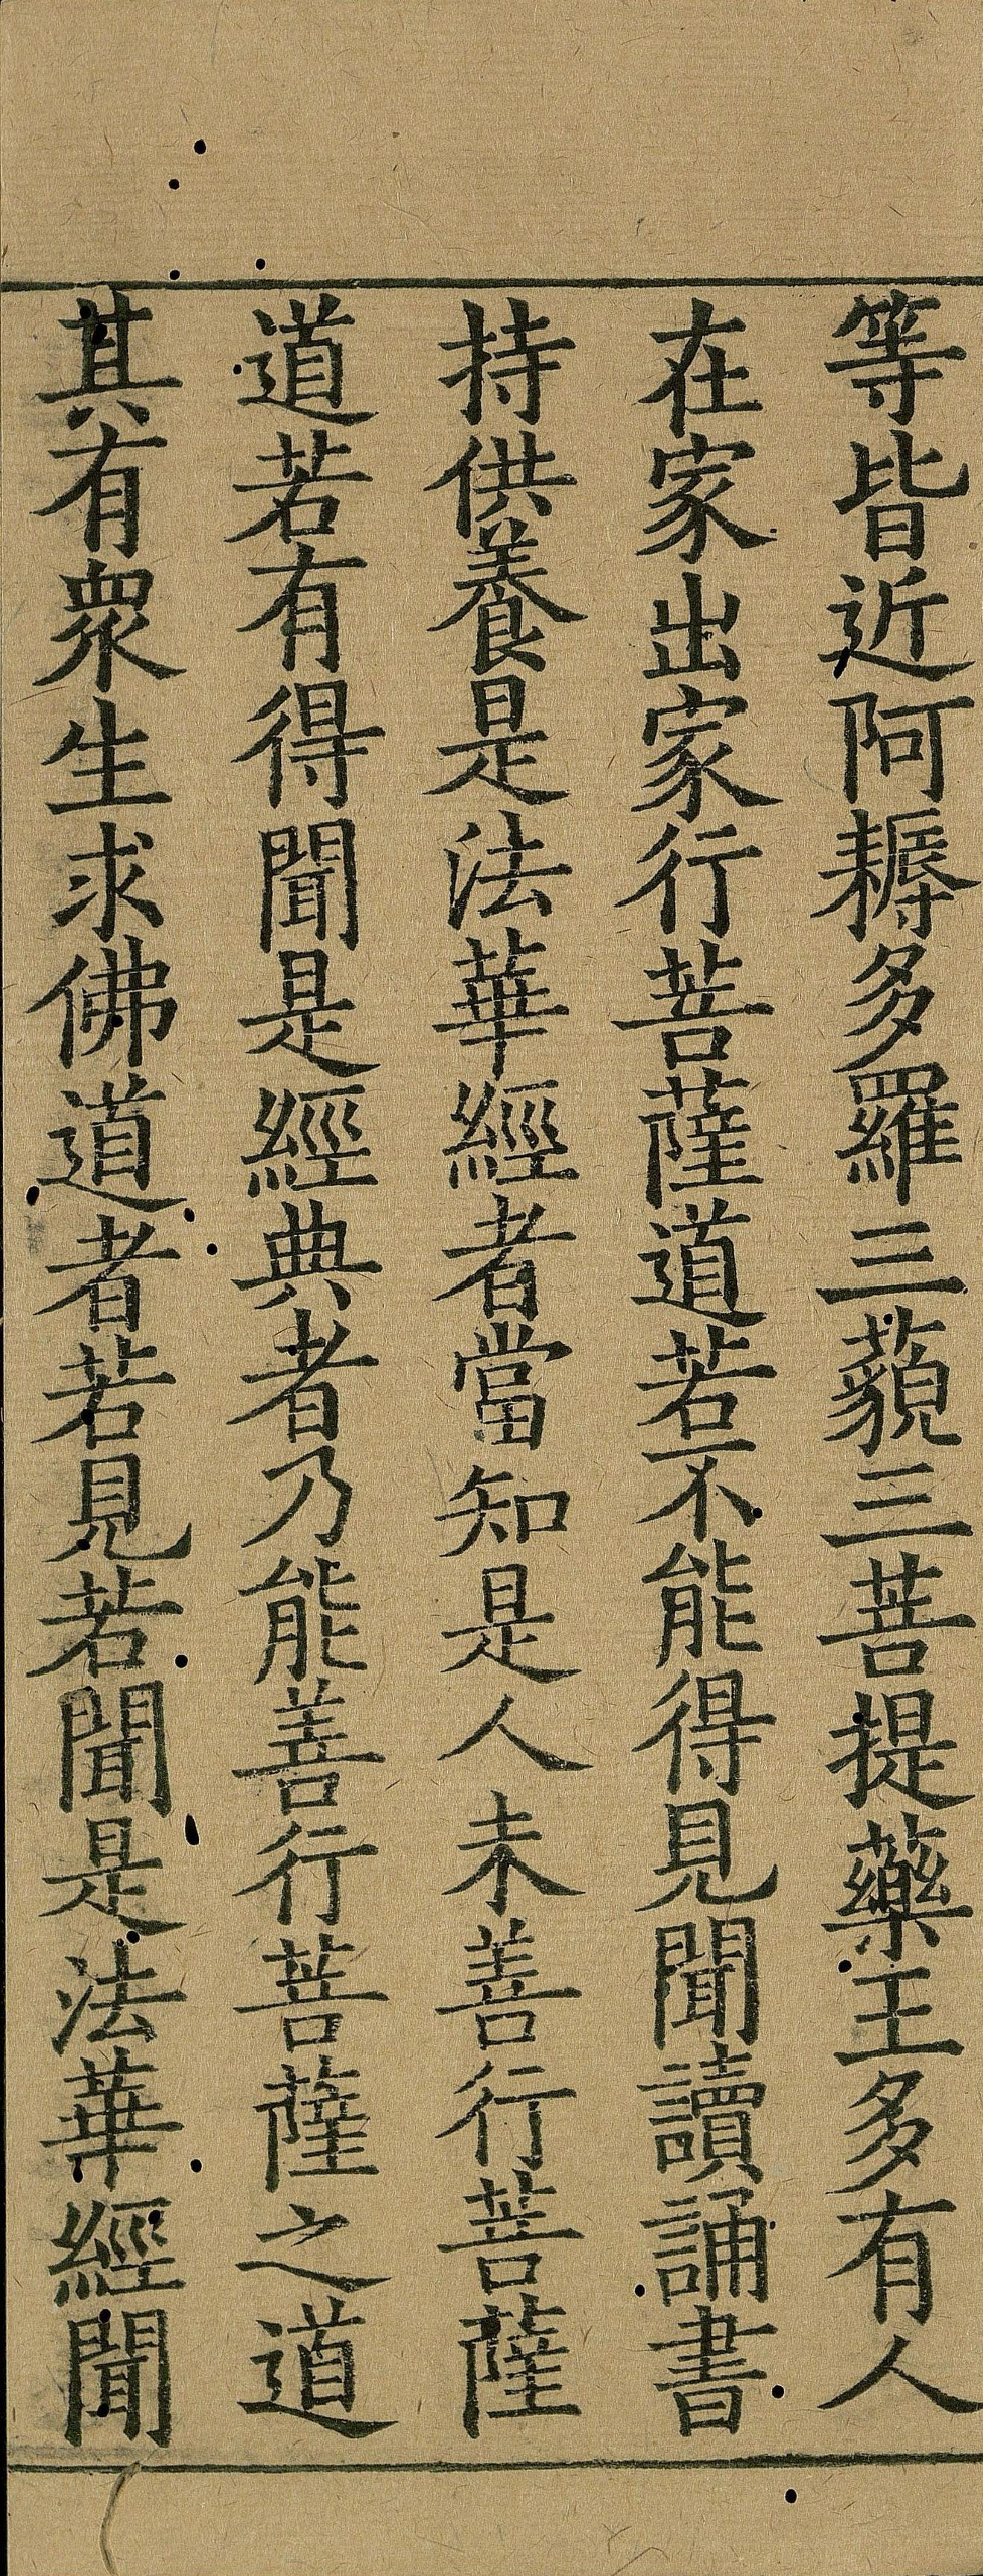 等皆近阿耨多羅三藐三菩提藥王多有人
在家出家行菩薩道若不能得見聞讀誦書
持供養是法華經者當知是人未善行菩薩
道若有得聞是經典者乃能善行菩薩之道
其有衆生求佛道者若見若聞是法華經聞